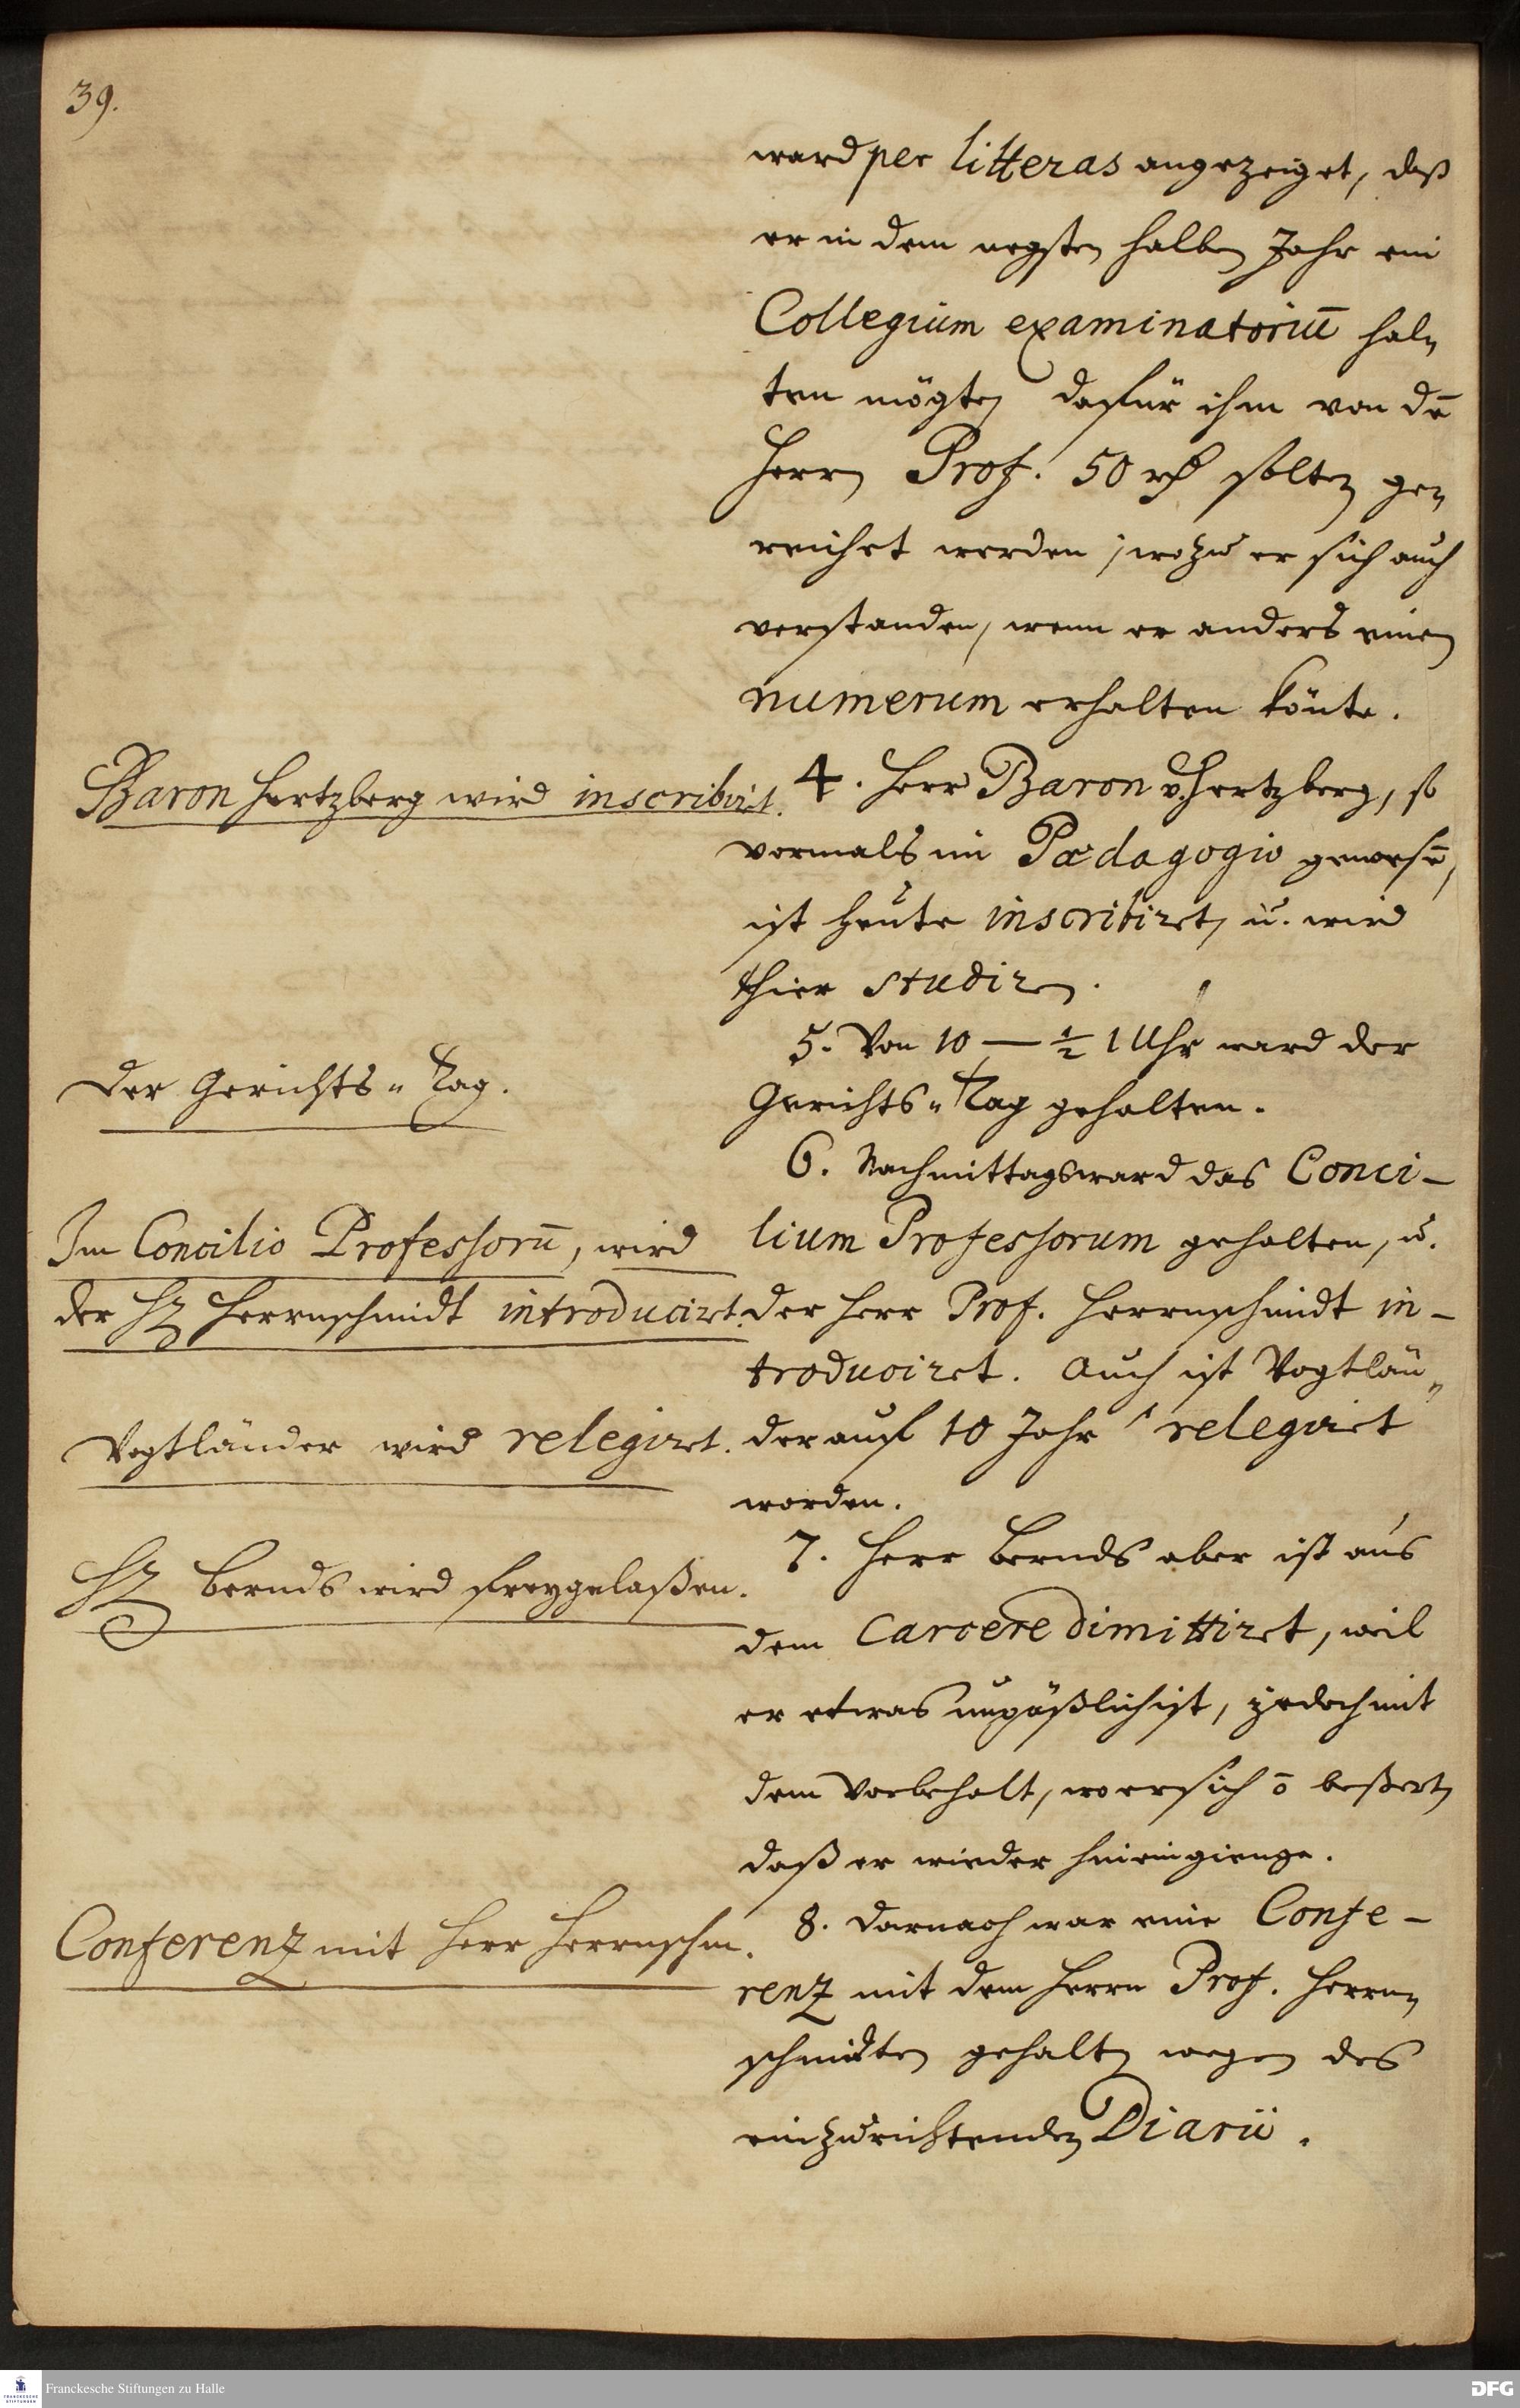 39.
ward per litteras angezeiget, daß
er in dem negsten halben Jahr ein
Collegium examinatoriū hal-
ten mögte, dafür ihm von dē
Herrn Prof. 50 rth solten ge-
reichet werden; wozu er sich auch
verstanden, wenn er anders einen
numerum erhalten könte.
Baron Hertzberg wird inscribirt.
4. Herr Baron v. Hertzberg, so
vormals im Pædagogio gewesē,
ist heute inscribiret, u. wird
hier studiren.
5. Von 10 — ½ 1 Uhr ward der
Der Gerichts-Tag.
Gerichts-Tag gehalten.
6. Nachmittags ward das Conci-
Im Concilio Professorū, wird
lium Professorum gehalten, u.
der H Herrnschmidt introduciret.
der Herr Prof. Herrnschmidt in-
troduciret. Auch ist Vogtlän-
Vogtländer wird relegiret.
der auf 10 Jahr relegiret
worden.
7. Herr Bernds aber ist aus
H Bernds wird freygelaßen.
dem Carcere dimittiret, weil
er etwas unpäßlich ist, jedoch mit
dem Vorbehalt, wo er sich ō beßert,
daß er wieder hineingienge.
8. Darnach war eine Confe-
Conferenz mit Herr Herrnschm.
renz mit dem Herrn Prof. Herrn-
schmidten gehalten wegen des
einzurichtenden Diarii.
Franckesche Stiftungen zu Halle
DFG